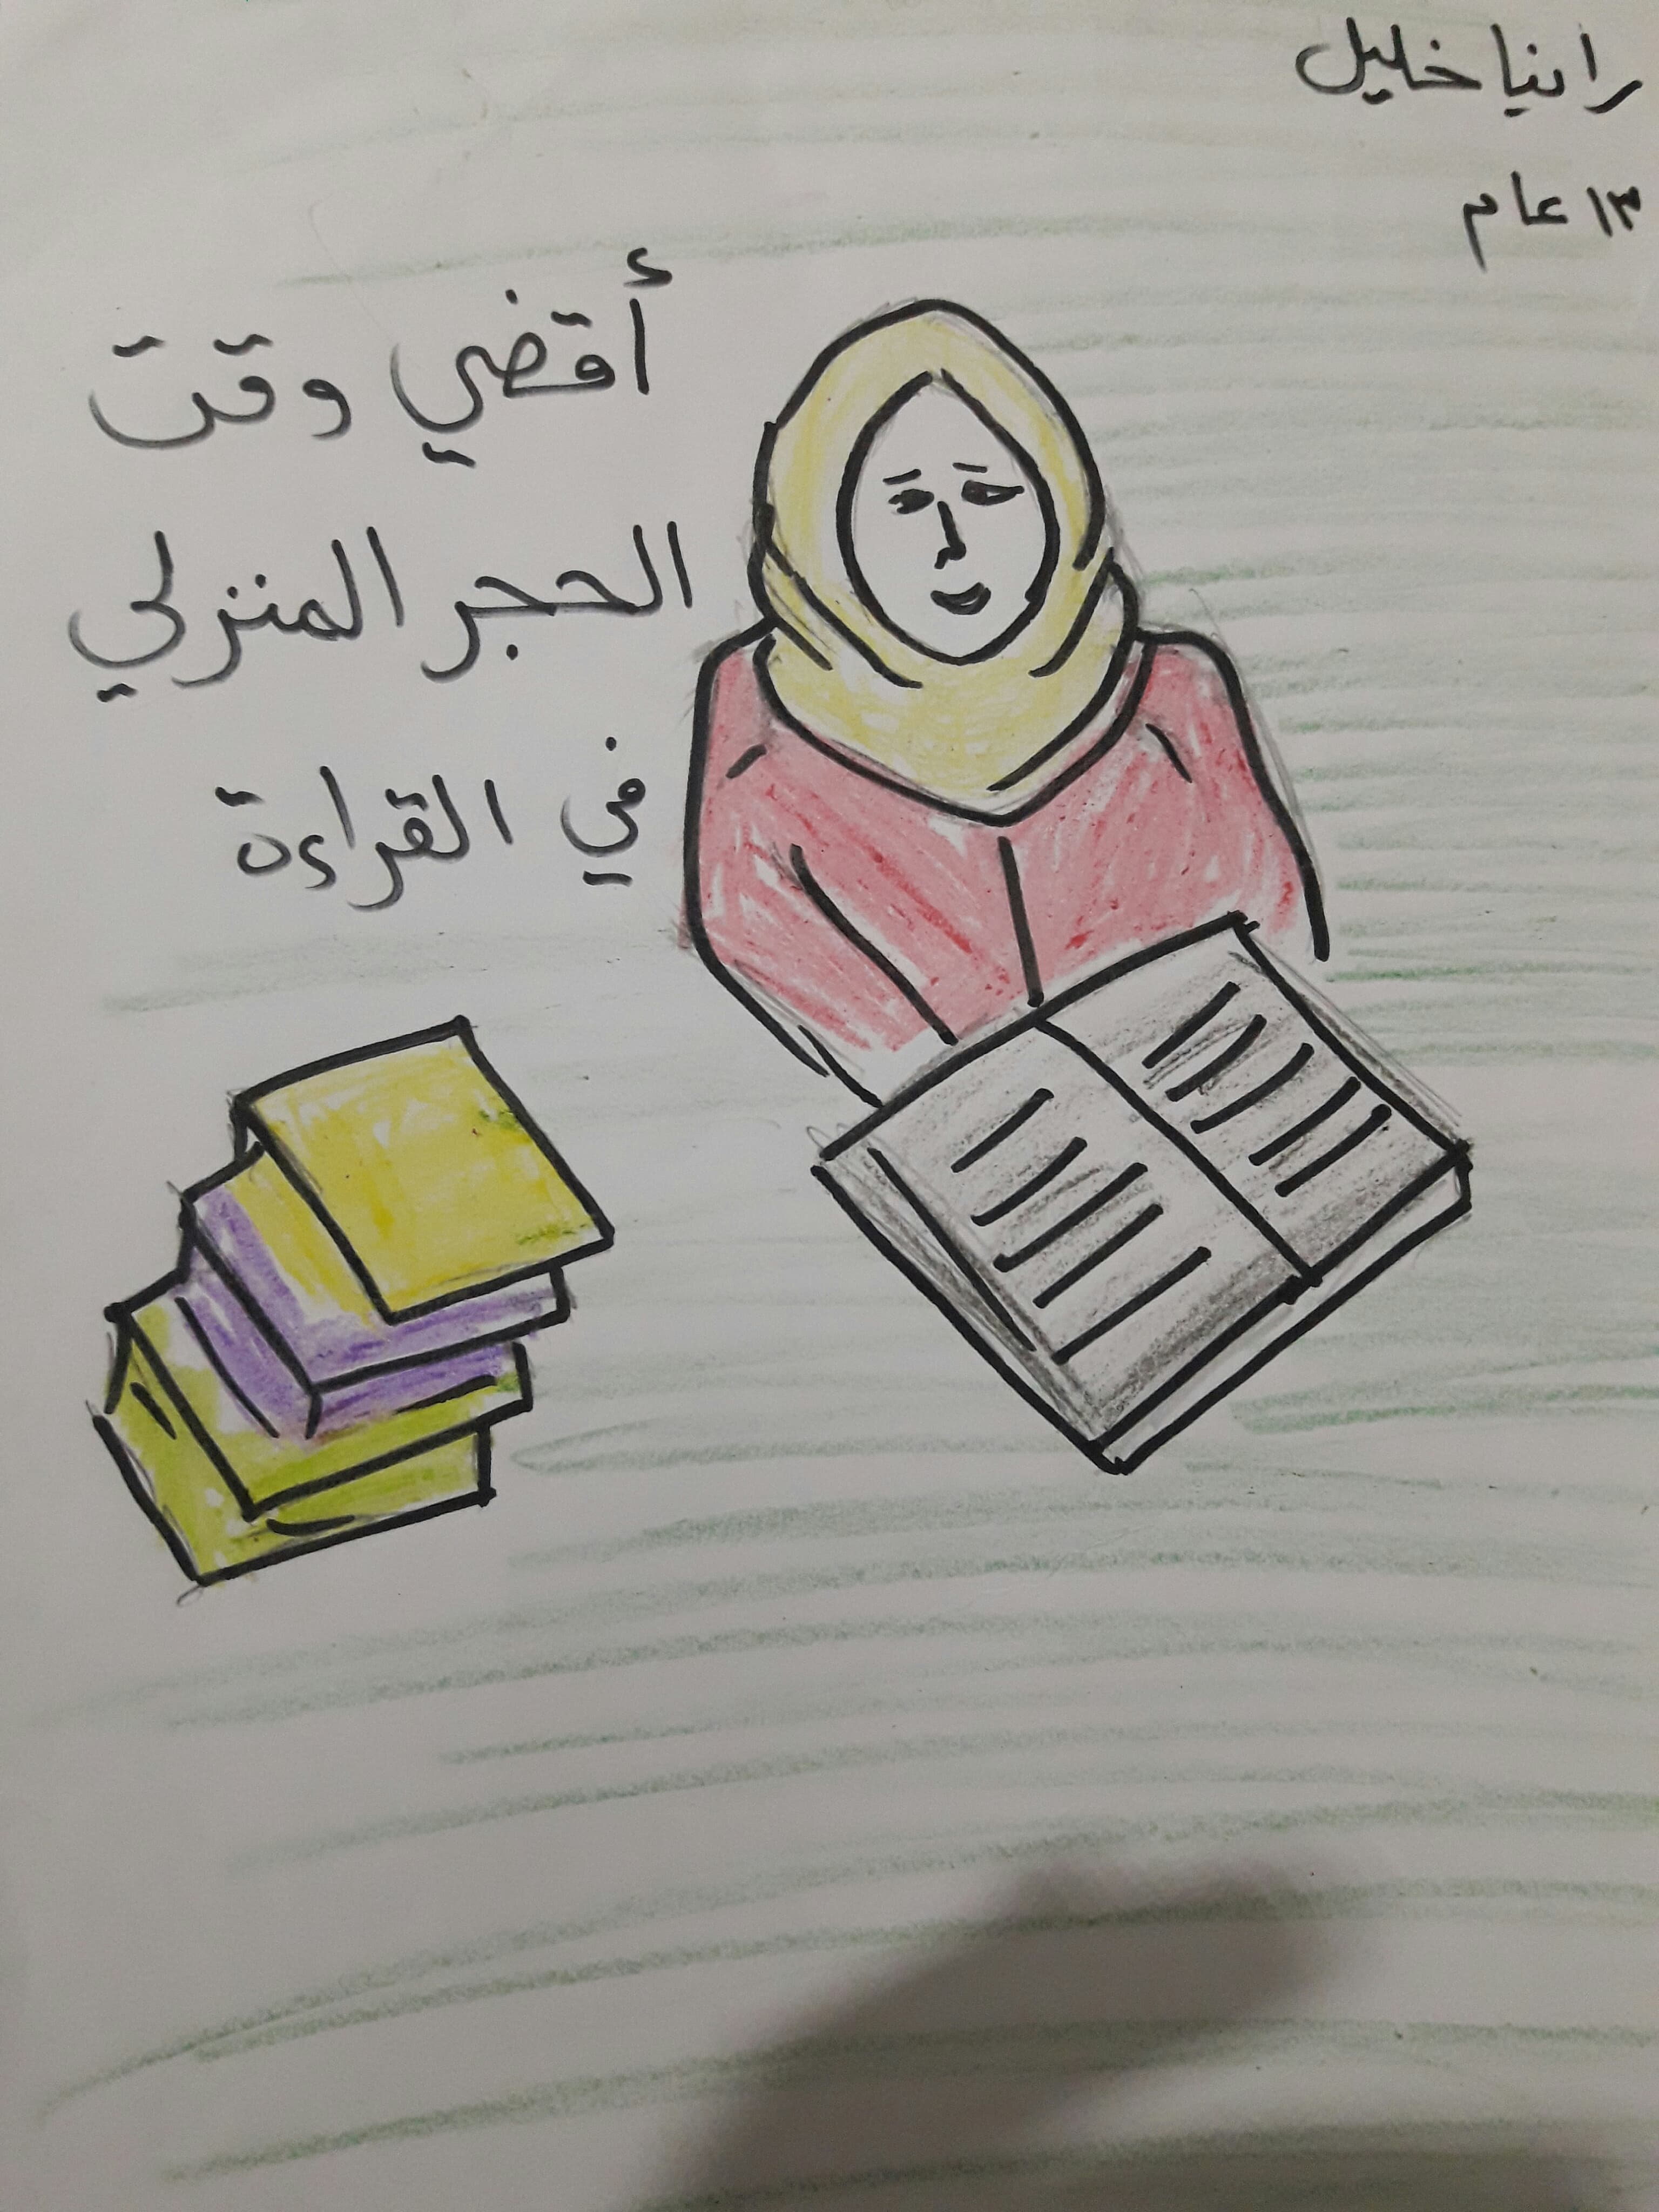 رانيا خليل
١٣ عام
أقضي وقت
الحجر المنزلي
في القراءة